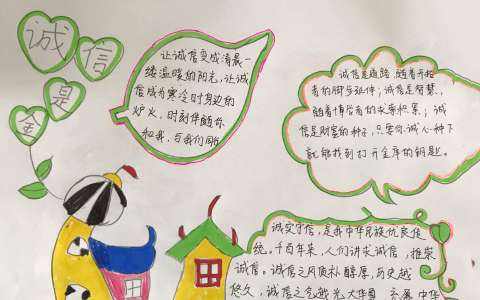 诚信
是
金
让诚信变成清晨一
缕温暖的阳光,让诚
信成为寒冷时身边的
炉火,时刻伴随你
和我,与我们同行
诚信是道路,随着开拓
者的脚步延伸;诚信是智慧,
随着博学者的求索积累;诚
信是财富的种子,只要你诚心种下
就能找到打开金库的钥匙。
诚实守信,是我中华民族优良传
统。千百年来,人们讲求诚信,推崇
诚信。诚信之风质朴醇厚,历史越
悠久,诚信之气越光大华夏
充盈中华